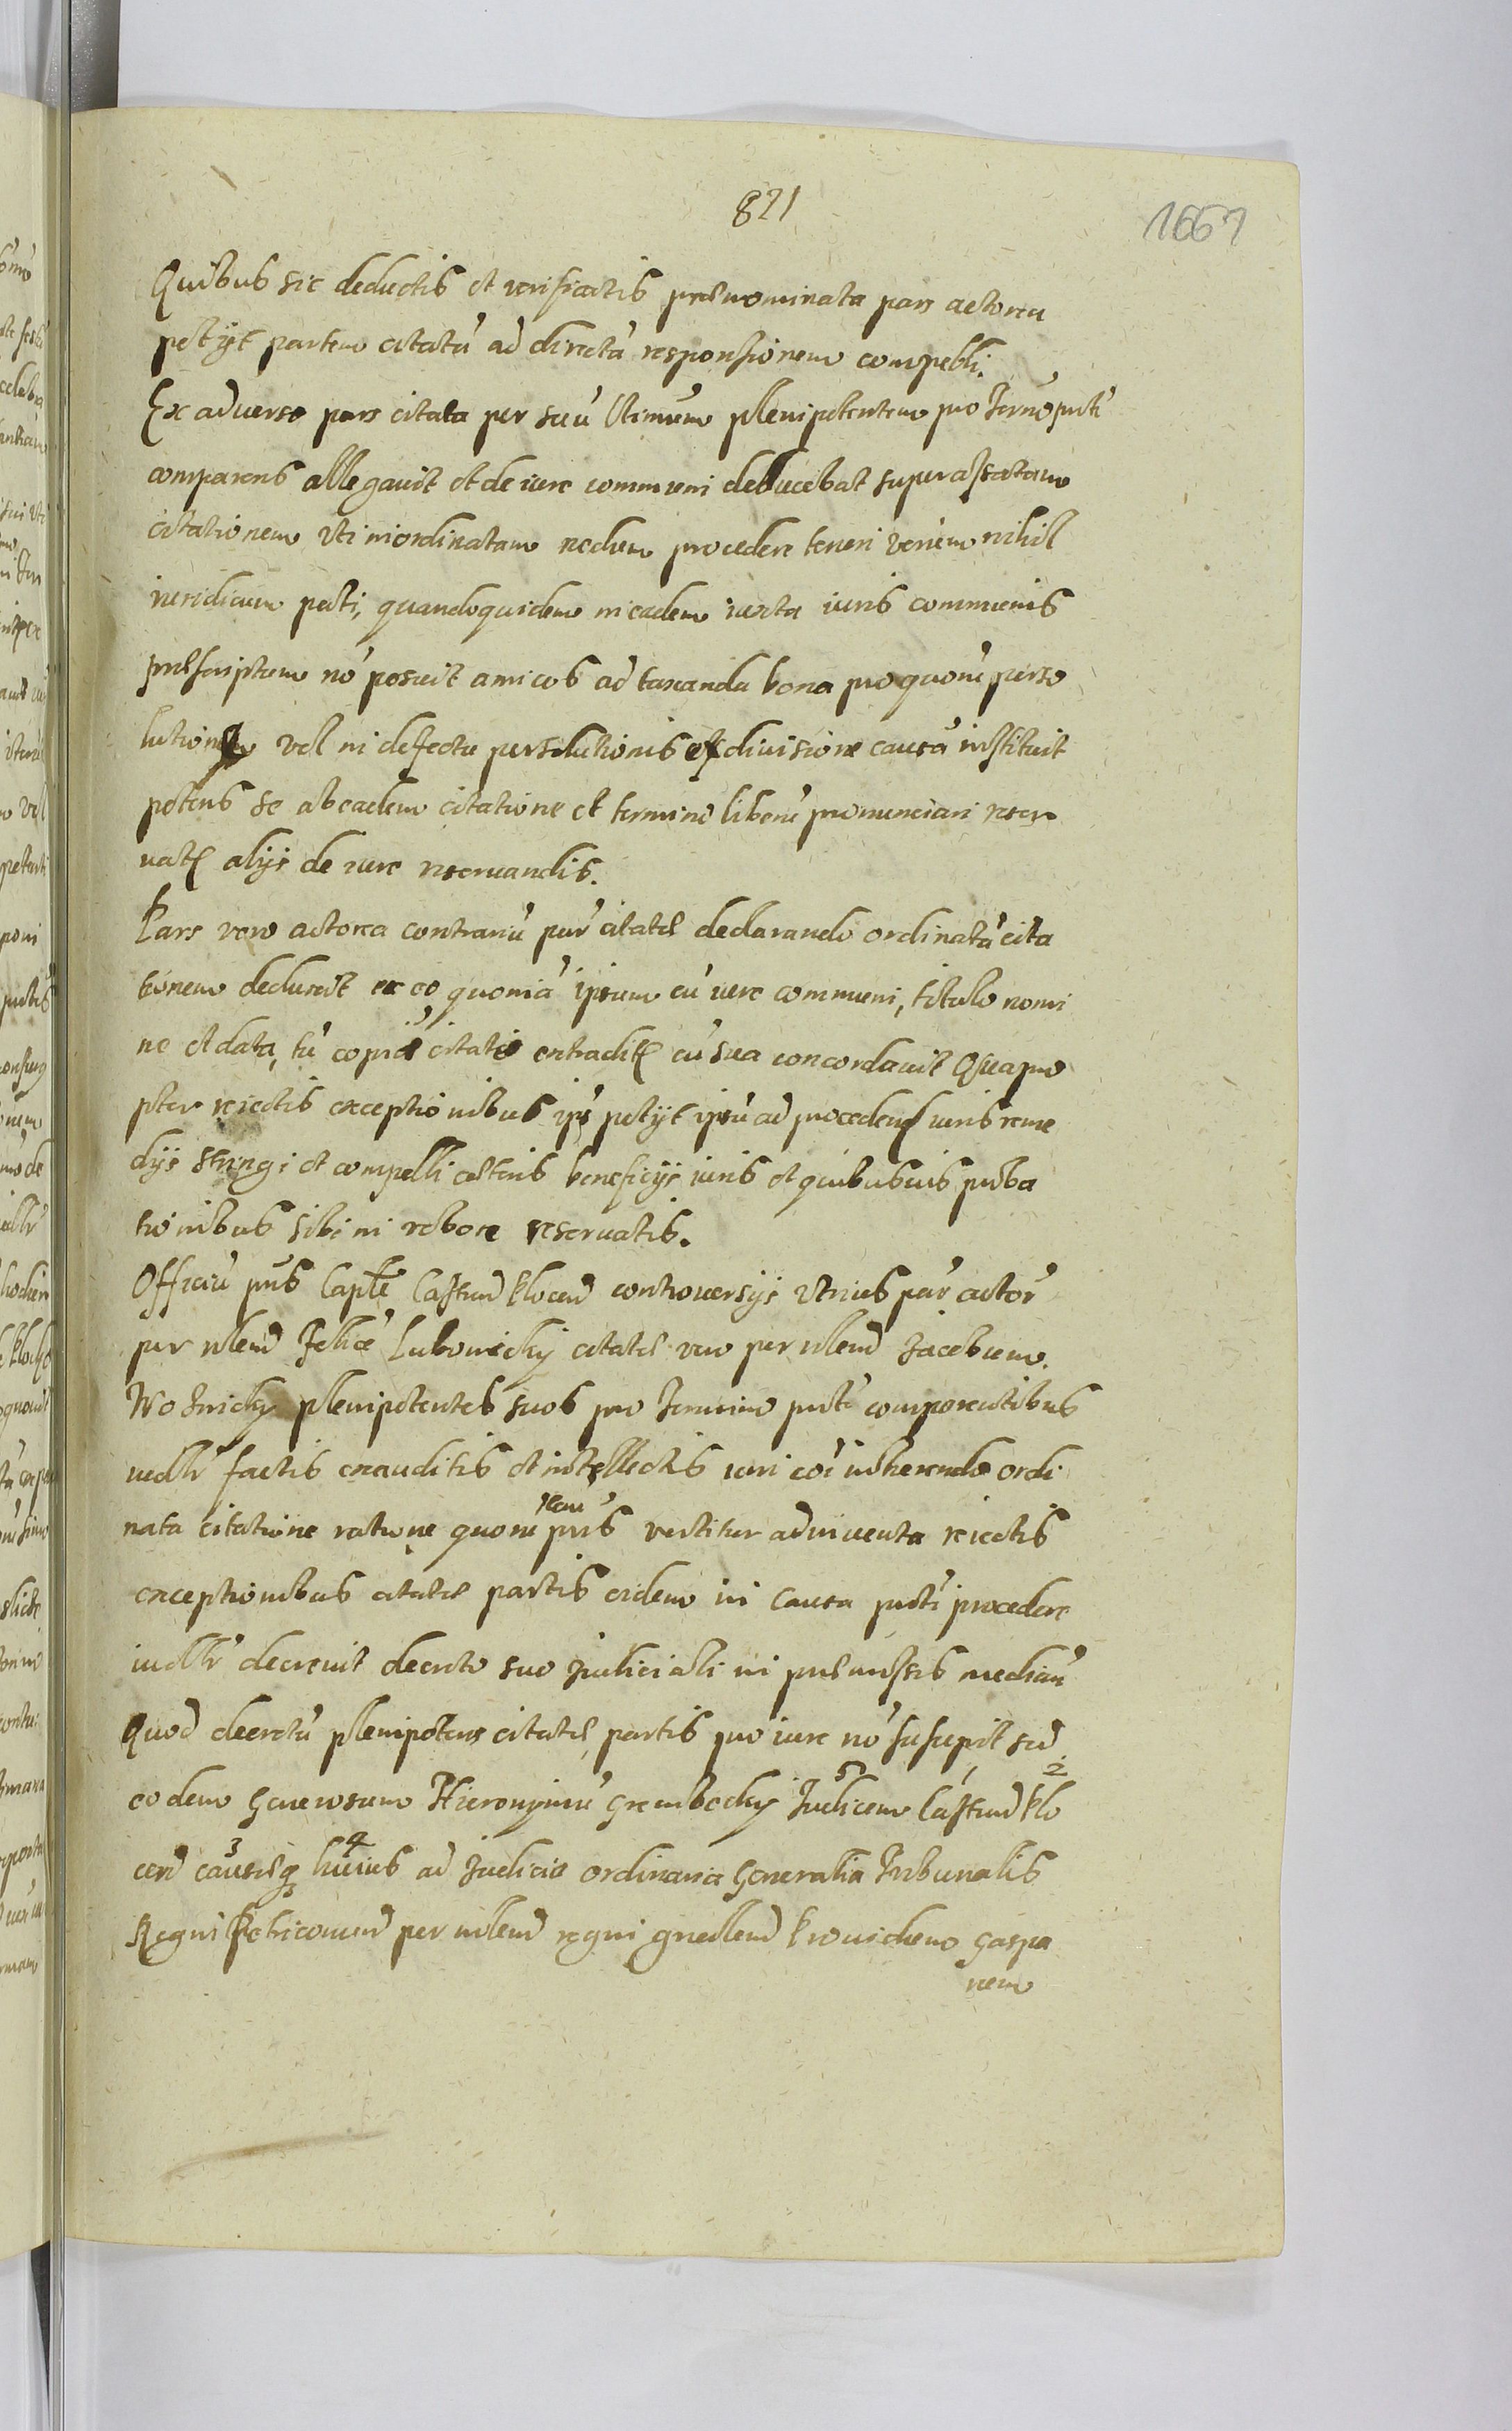 821
1661
Quibus sic deductis et verificatis praenominata pars actorea
petijt partem citatu ad directa responsionem compelli.
Ex adverso pars citata per suu Ultimum plenipotentem pro Termo pnti
comparens allegavit et de iure communi deducebat supra
citationem uti inordinatam procedere teneri verum nihil
iuridicum peti, quandoquidem in eadem iuxta iuris communis
praescriptum no posuit amicos ad taxanda bona pro quorum perso
lutione vel in defectu persolutionis et divisione causa instituit
petens se ab eadem citatione et termino liberu pronunciari reser
vatis alijs de iure reservandis.
Pars vero actorea contrariu par citatae declarando ordinata cita
tionem deduxit ex eo quonia ipsam cu iure communi, titulo nomi
ne et data, tu copia citatis extradit cu sua concordavit Quapro
pter reiectis exceptionibus ips petijt ipsu ad procedend iuris reme
dijs stringi et compelli caeteris beneficijs iuris et quibusvis proba
tionibus sibi in robore reservatis.
Officiu pns Capte Castren Klocen controversijs utrius par actor
per nlem Felice Lubowicky citatae vero per nlem Jacobum
Wosnicky plenipotentes suos pro Termino pnti comparentibus
iudlr factis exauditis et intellectis iuri coi inhaerendo ordi
nata citatione ratione quorum rerum pns vertitur adinventa reiectis
exceptionibus citatae partis eidem in causa pnti procedere
iudlr decrevit decreto suo Judiciali in praemissis median
Quod decretu plenipotens citatae partis pro iure no suscepit sed
2
eodem Generosum Hieronymu Grembecky 5 Judicem Castren Klo
cen 3 causaeq 4 huius ad Judicia ordinaria Generalia Tribunalis
Regni Petricovien per nlem regni gnellem Providum Gaspa
rem